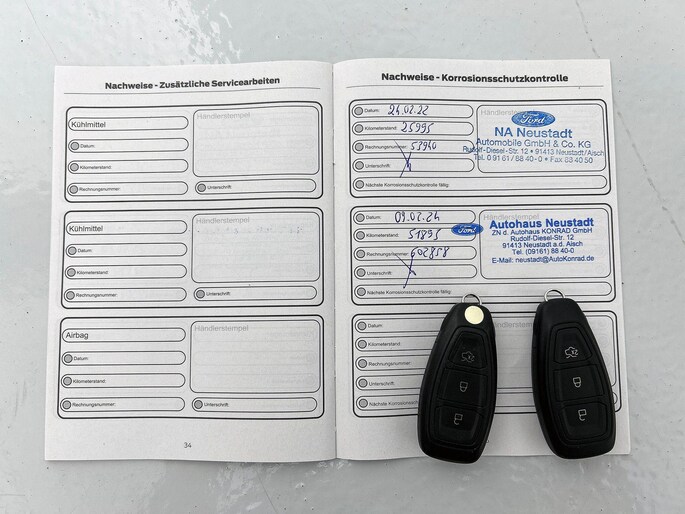 Nachweise - Zusätzliche Servicearbeiten
Kühlmittel
Händlerstempel
Datum:
Kilometerstand:
Rechnungsnummer:
Unterschrift:
Kühlmittel
Händlerstempel
Datum:
Kilometerstand:
Rechnungsnummer:
Unterschrift:
Airbag
Händlerstempel
Datum:
Kilometerstand:
Rechnungsnummer:
Unterschrift:
34
Nachweise - Korrosionsschutzkontrolle
Datum: 24.02.22
Kilometerstand: 25995
Rechnungsnummer: 53940
Unterschrift:
Nächste Korrosionsschutzkontrolle fällig:
Händlerstempel
Ford
NA Neustadt
Automobile GmbH & Co. KG
Rudolf-Diesel-Str. 12 • 91413 Neustadt/Aisch
Tel. 0 91 61 / 88 40-0 • Fax 88 40 50
Datum: 09.02.24
Kilometerstand: 51895
Rechnungsnummer: 602858
Unterschrift:
Nächste Korrosionsschutzkontrolle fällig:
Händlerstempel
Ford
Autohaus Neustadt
ZN d. Autohaus KONRAD GmbH
Rudolf-Diesel-Str. 12
91413 Neustadt a.d. Aisch
Tel. (09161) 88 40-0
E-Mail: neustadt@AutoKonrad.de
Datum:
Kilometerstand:
Rechnungsnummer:
Unterschrift:
Nächste Korrosionsschutz